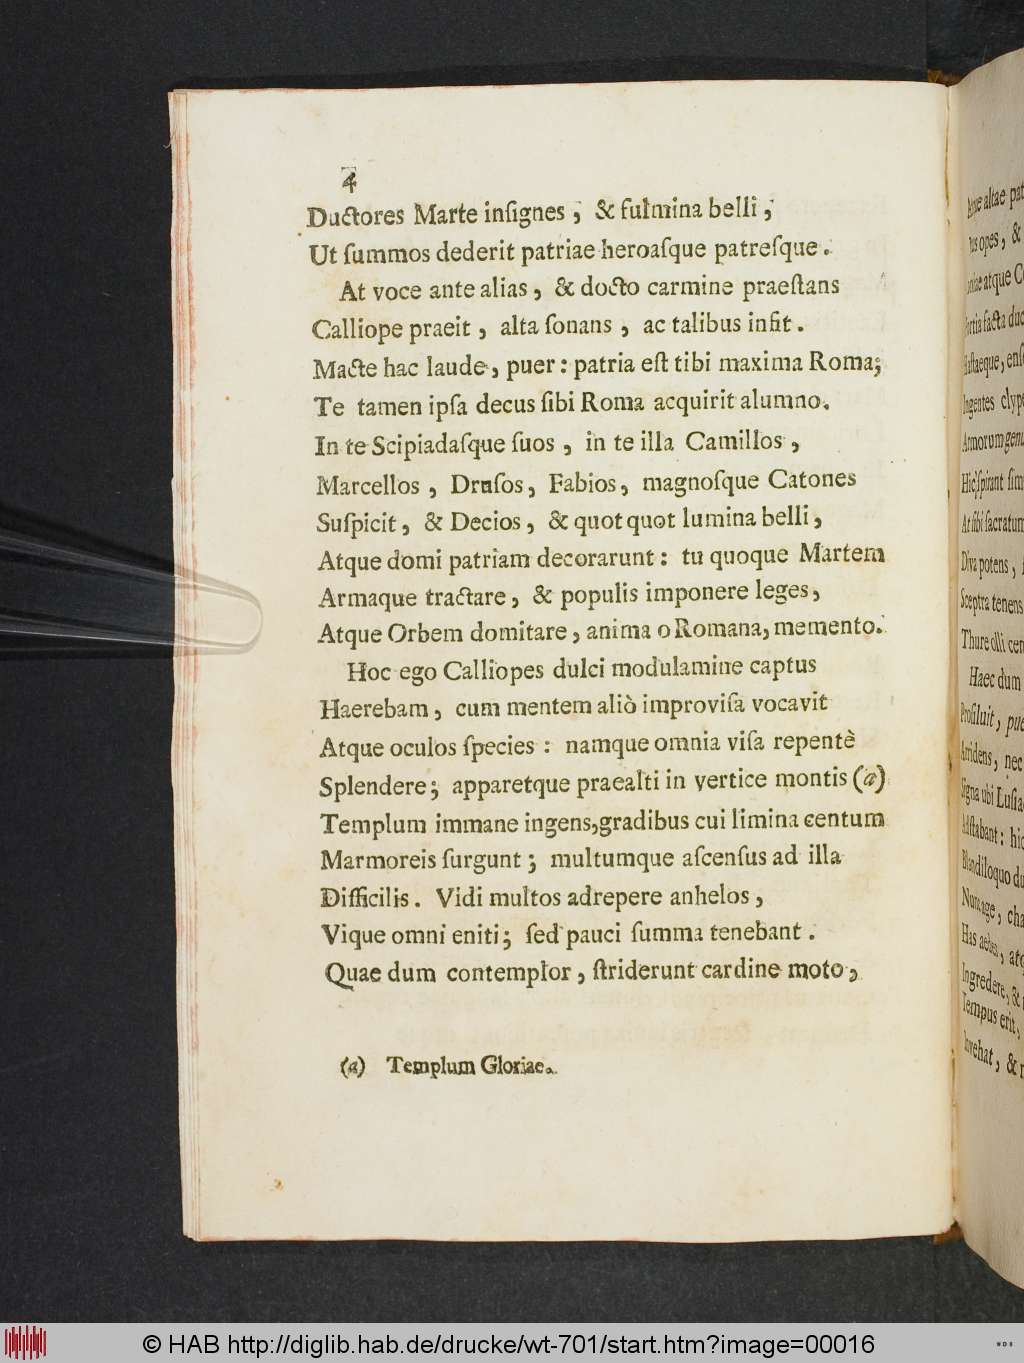 4
Ductores Marte insignes, & fulmina belli,
Ut ſummos dederit patriae heroaſque patreſque.
At voce ante alias, & docto carmine praeſtans
Calliope praeit, alta ſonans, ac talibus infit.
Macte hac laude, puer: patria eſt tibi maxima Roma;
Te tamen ipſa decus ſibi Roma acquirit alumno.
In te Scipiadaſque ſuos, in te illa Camillos,
Marcellos, Druſos, Fabios, magnoſque Catones
Suſpicit, & Decios, & quot quot lumina belli,
Atque domi patriam decorarunt: tu quoque Martem
Armaque tractare, & populis imponere leges,
Atque Orbem domitare, anima o Romana, memento.
Hoc ego Calliopes dulci modulamine captus
Haerebam, cum mentem aliò improviſa vocavit
Atque oculos ſpecies: namque omnia viſa repentè
Splendere; apparetque praealti in vertice montis (a)
Templum immane ingens, gradibus cui limina centum
Marmoreis ſurgunt; multumque aſcenſus ad illa
Difficilis. Vidi multos adrepere anhelos,
Vique omni eniti; ſed pauci ſumma tenebant.
Quae dum contemplor, ſtriderunt cardine moto,
(a) Templum Gloriae.
altae
opes, &
atque
facta
Ingentes
Armorum
Hic ſpirant
At ſibi ſacratum
Diva potens,
Sceptra tenens
Thure olli
Haec dum
Proſiluit,
Arridens, nec
Signa ubi
Adſtabant:
Blandiloquo
Nunc age,
Has aedes,
Ingredere, &
Tempus erit,
Invehat, &
© HAB http://diglib.hab.de/drucke/wt-701/start.htm?image=00016